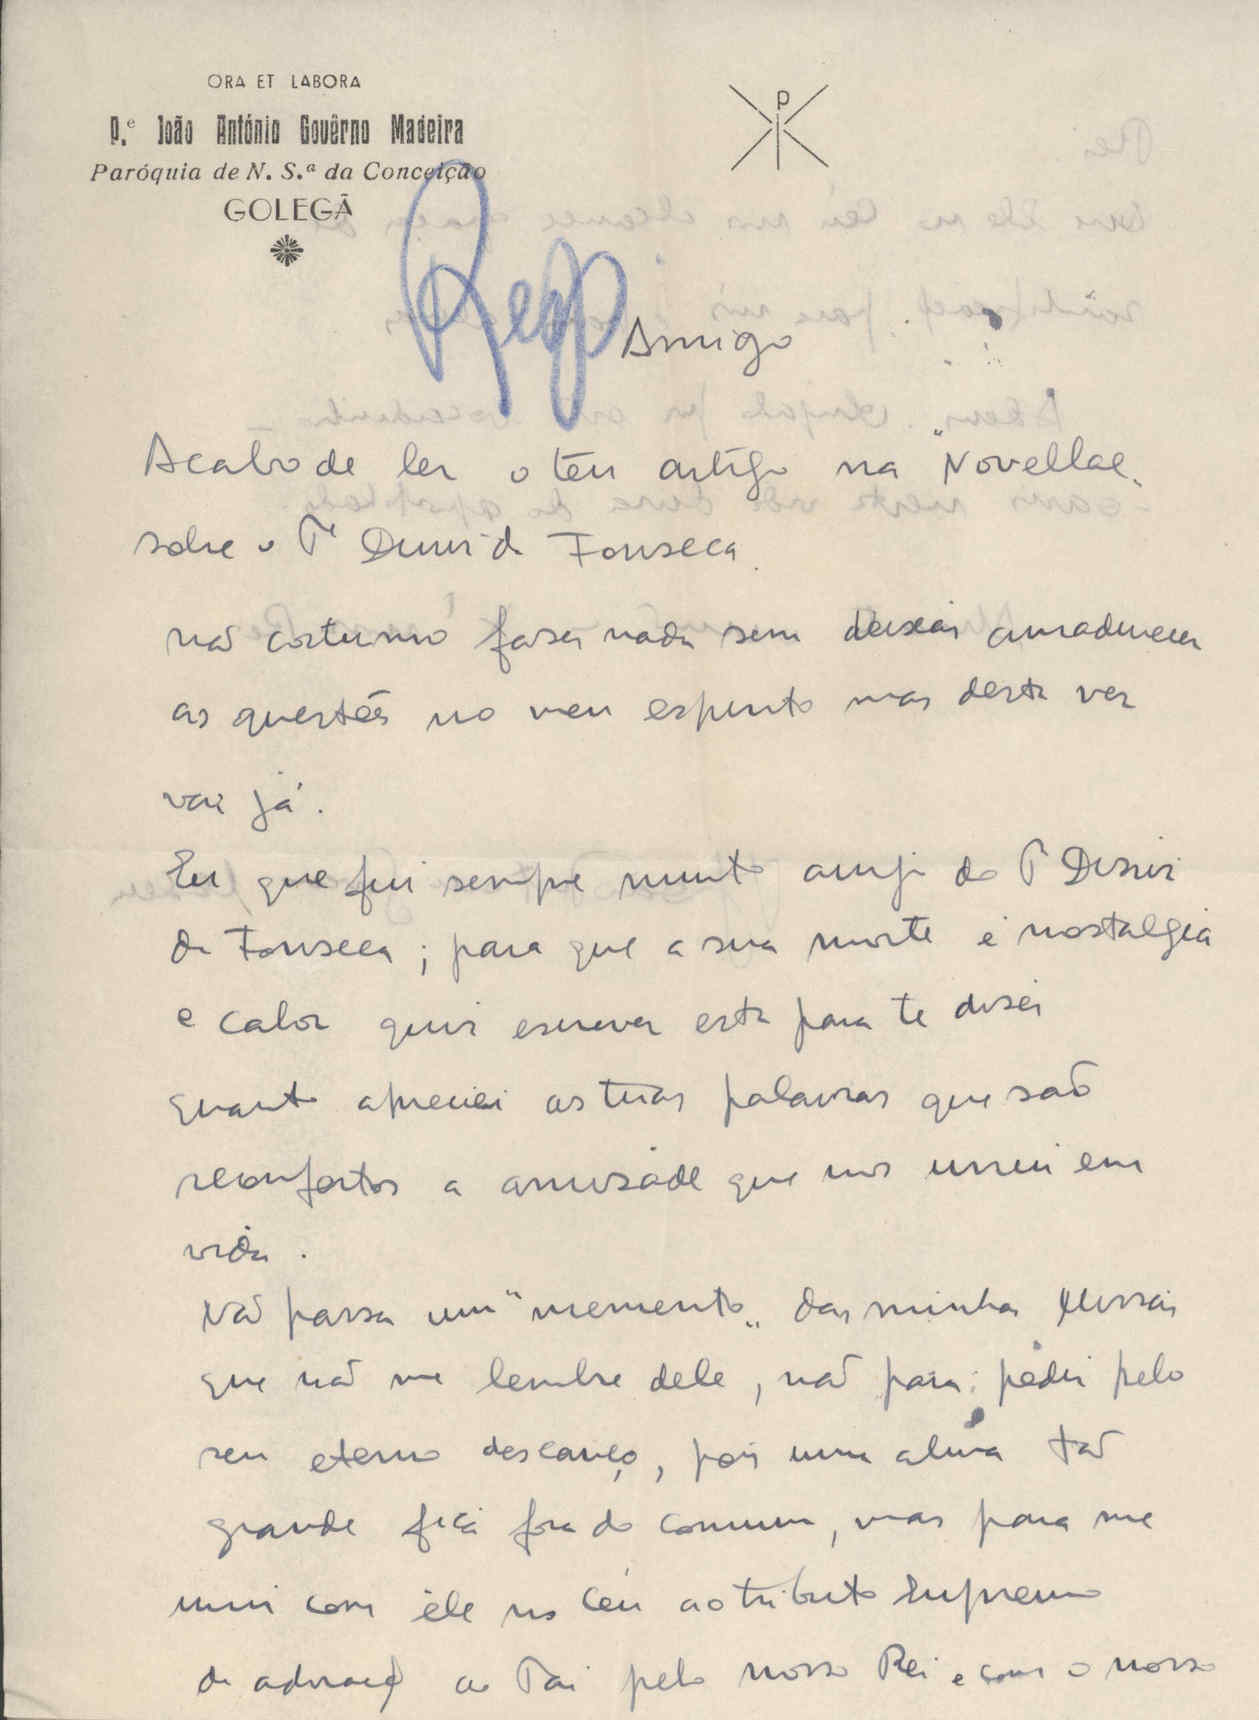 ORA ET LABORA
P.e João António Govêrno Madeira
Paróquia de N. S.ª da Conceição
GOLEGÃ
P
Resp
Amigo
Acabo de ler o teu artigo na "Novellae"
sobre o Pe Dinis da Fonseca.
não costumo fazer nada sem deixar amadurecer
as questões no meu espírito mas desta vez
vai já.
Eu que fui sempre muito amigo do P Dinis
da Fonseca; para que a sua morte é nostalgia
e calor quis escrever esta para te dizer
quanto apreciei as tuas palavras que são
reconfortos a amizade que nos uniu em
vida.
Não passa um "memento" das minhas Missas
que não me lembre dele, não para pedir pelo
seu eterno descanço, pois uma alma tão
grande fica fora do comum, mas para me
unir com êle no Céu ao tributo supremo
de adoração ao Pai pelo nosso Rei e com o nosso